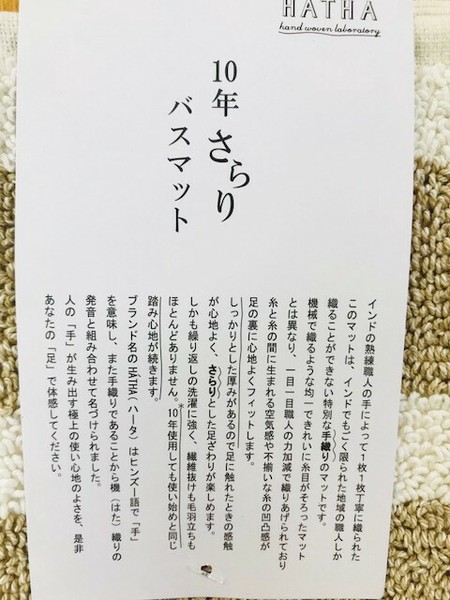 HATHA
hand woven laboratory
10年さらり
バスマット
インドの熟練職人の手によって1枚1枚丁寧に織られた
このマットは、インドでもごく限られた地域の職人しか
織ることができない特別な手織りのマットです。
機械で織るような均一できれいに糸目がそろったマット
とは異なり、一目一目職人の力加減で織りあげられており
糸と糸の間に生まれる空気感や不揃いな糸の凹凸感が
足の裏に心地よくフィットします。
しっかりとした厚みがあるので足に触れたときの感触
が心地よく、さらりとした足ざわりが楽しめます。
しかも繰り返しの洗濯に強く、繊維抜けも毛羽立ちも
ほとんどありません。*10年使用しても使い始めと同じ
踏み心地が続きます。
ブランド名のHATHA(ハータ)はヒンズー語で「手」
を意味し、また手織りであることから機(はた)織りの
発音と組み合わせて名づけられました。
人の「手」が生み出す極上の使い心地のよさを、是非
あなたの「足」で体感してください。